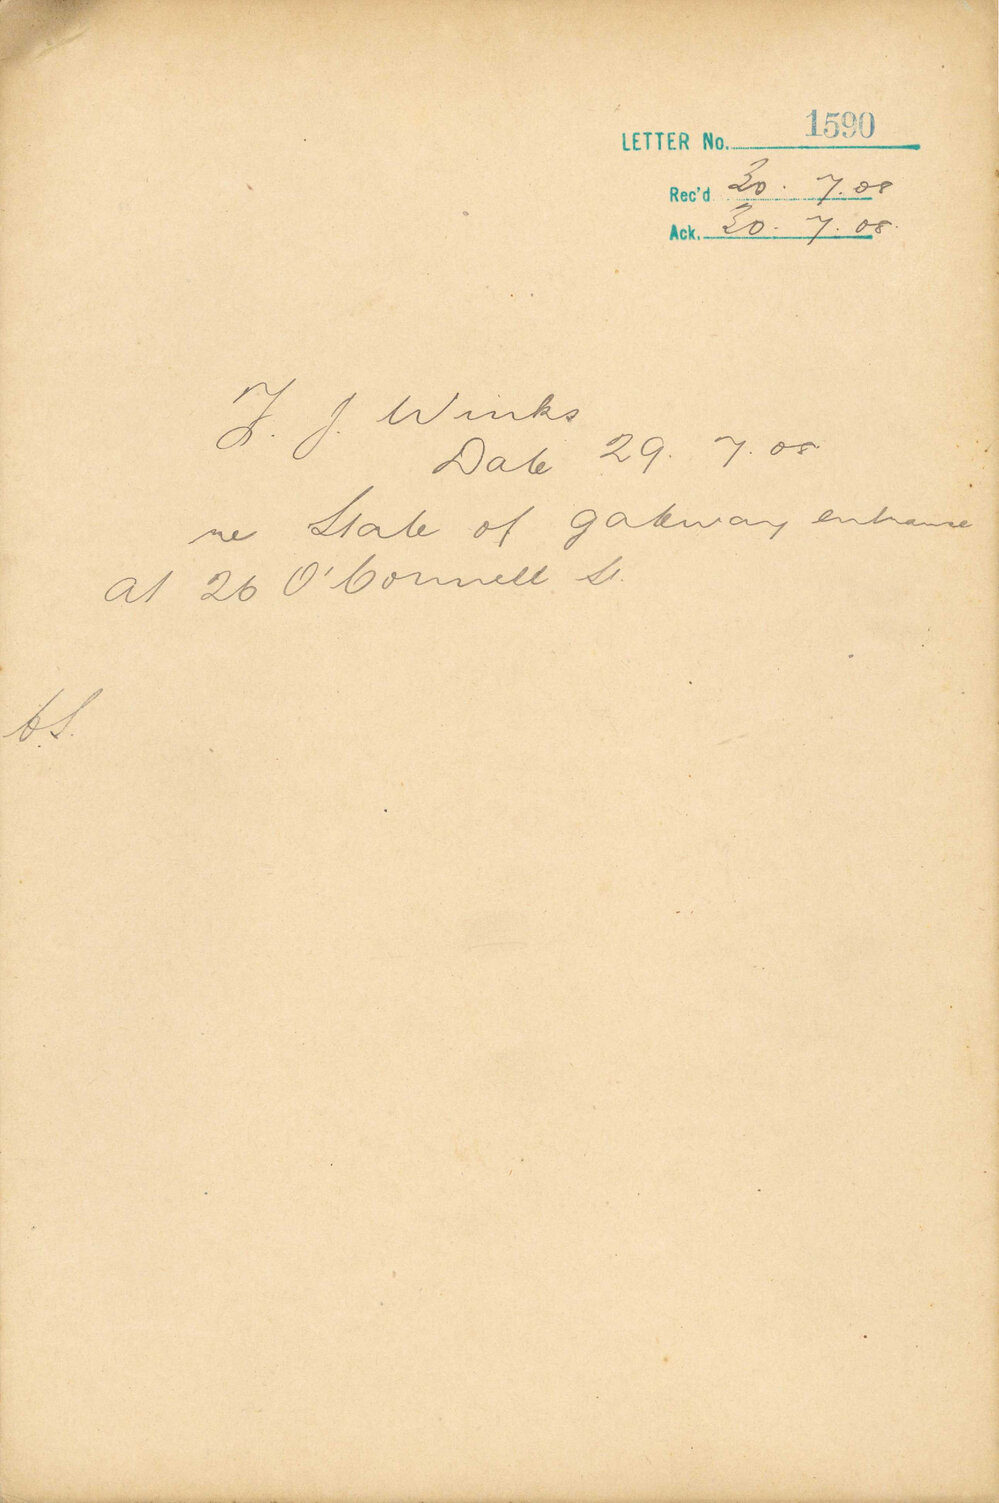 LETTER No. 1590
Rec'd 30. 7. 08
Ack. 30. 7. 08.
F. J. Winks
Date 29. 7. 08
re State of gateway entrance
at 26 O'Connell St.
C.S.